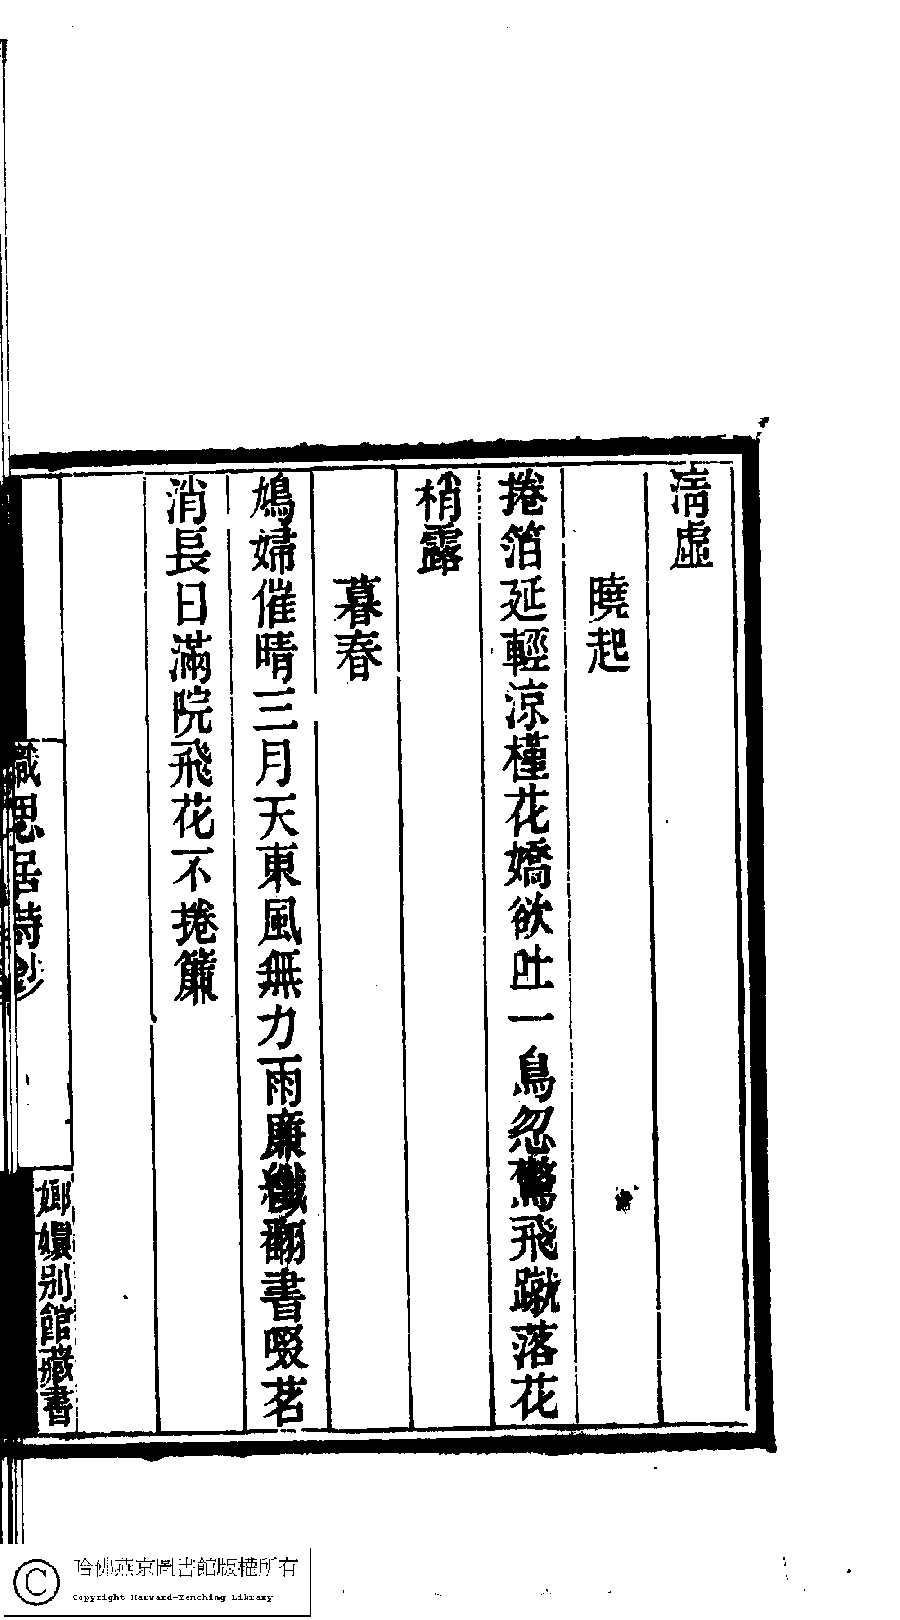 清虛
曉起
捲箔延輕涼槿花嬌欲吐一鳥忽驚飛蹴落花
梢露
暮春
鳩婦催晴三月天東風無力雨廉纖翻書啜茗
消長日滿院飛花不捲簾
織思居詩鈔
嫏嬛别館藏書
哈佛燕京圖書館版權所有
Copyright Harvard-Yenching Library